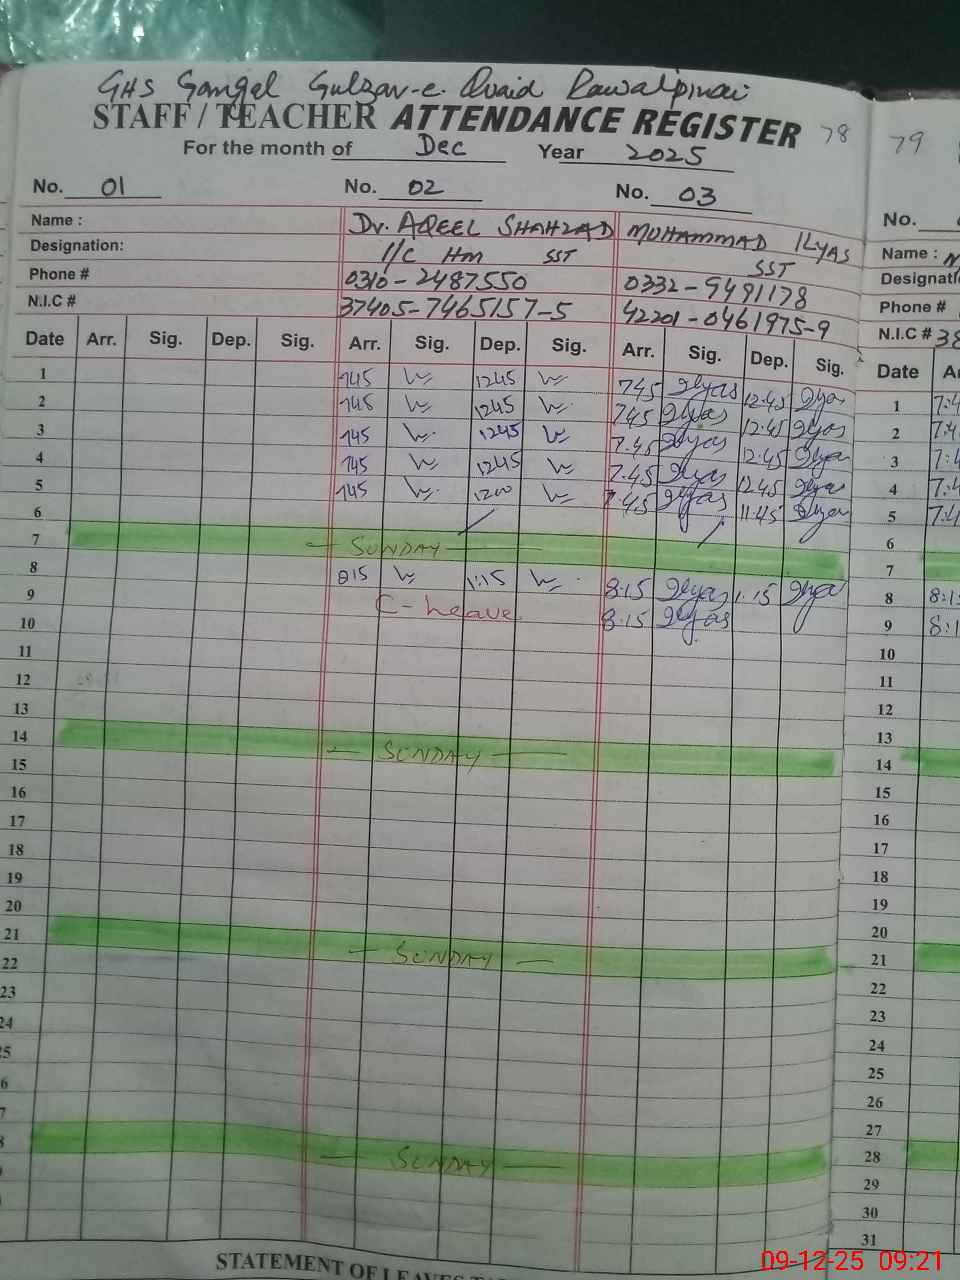 GHS Gangal Gulzar-e-Quaid Rawalpindi
STAFF / TEACHER ATTENDANCE REGISTER 78 79
For the month of Dec Year 2025
No. 01 No. 02 No. 03 No.
Name : Dr. AQEEL SHAHZAD MUHAMMAD ILYAS Name :
Designation: I/C HM SST SST
Phone # 0310-2487550 0332-9491178 Phone #
N.I.C # 37405-7465157-5 42201-0461975-9 N.I.C # 38
Date Arr. Sig. Dep. Sig. Arr. Sig. Dep. Sig. Arr. Sig. Dep. Sig. Date
1 745 1245 745 Ilyas 12:45 Ilyas 1 7:4
2 745 1245 745 Ilyas 12:45 Ilyas 2 7:4
3 745 1245 7:45 Ilyas 12:45 Ilyas 3 7:4
4 745 1245 7:45 Ilyas 12:45 Ilyas 4 7:4
5 745 1200 7:45 Ilyas 11:45 Ilyas 5 7:4
6 6
7 SUNDAY 7
8 815 1:15 8:15 Ilyas 1:15 Ilyas 8 8:1
9 C-Leave 8:15 Ilyas 9 8:1
10 10
11 11
12 12
13 13
14 SUNDAY 14
15 15
16 16
17 17
18 18
19 19
20 20
21 SUNDAY 21
22 22
23 23
24 24
5 25
6 26
7 27
8 SUNDAY 28
29
30
31
STATEMENT OF LEAVES
09-12-25 09:21